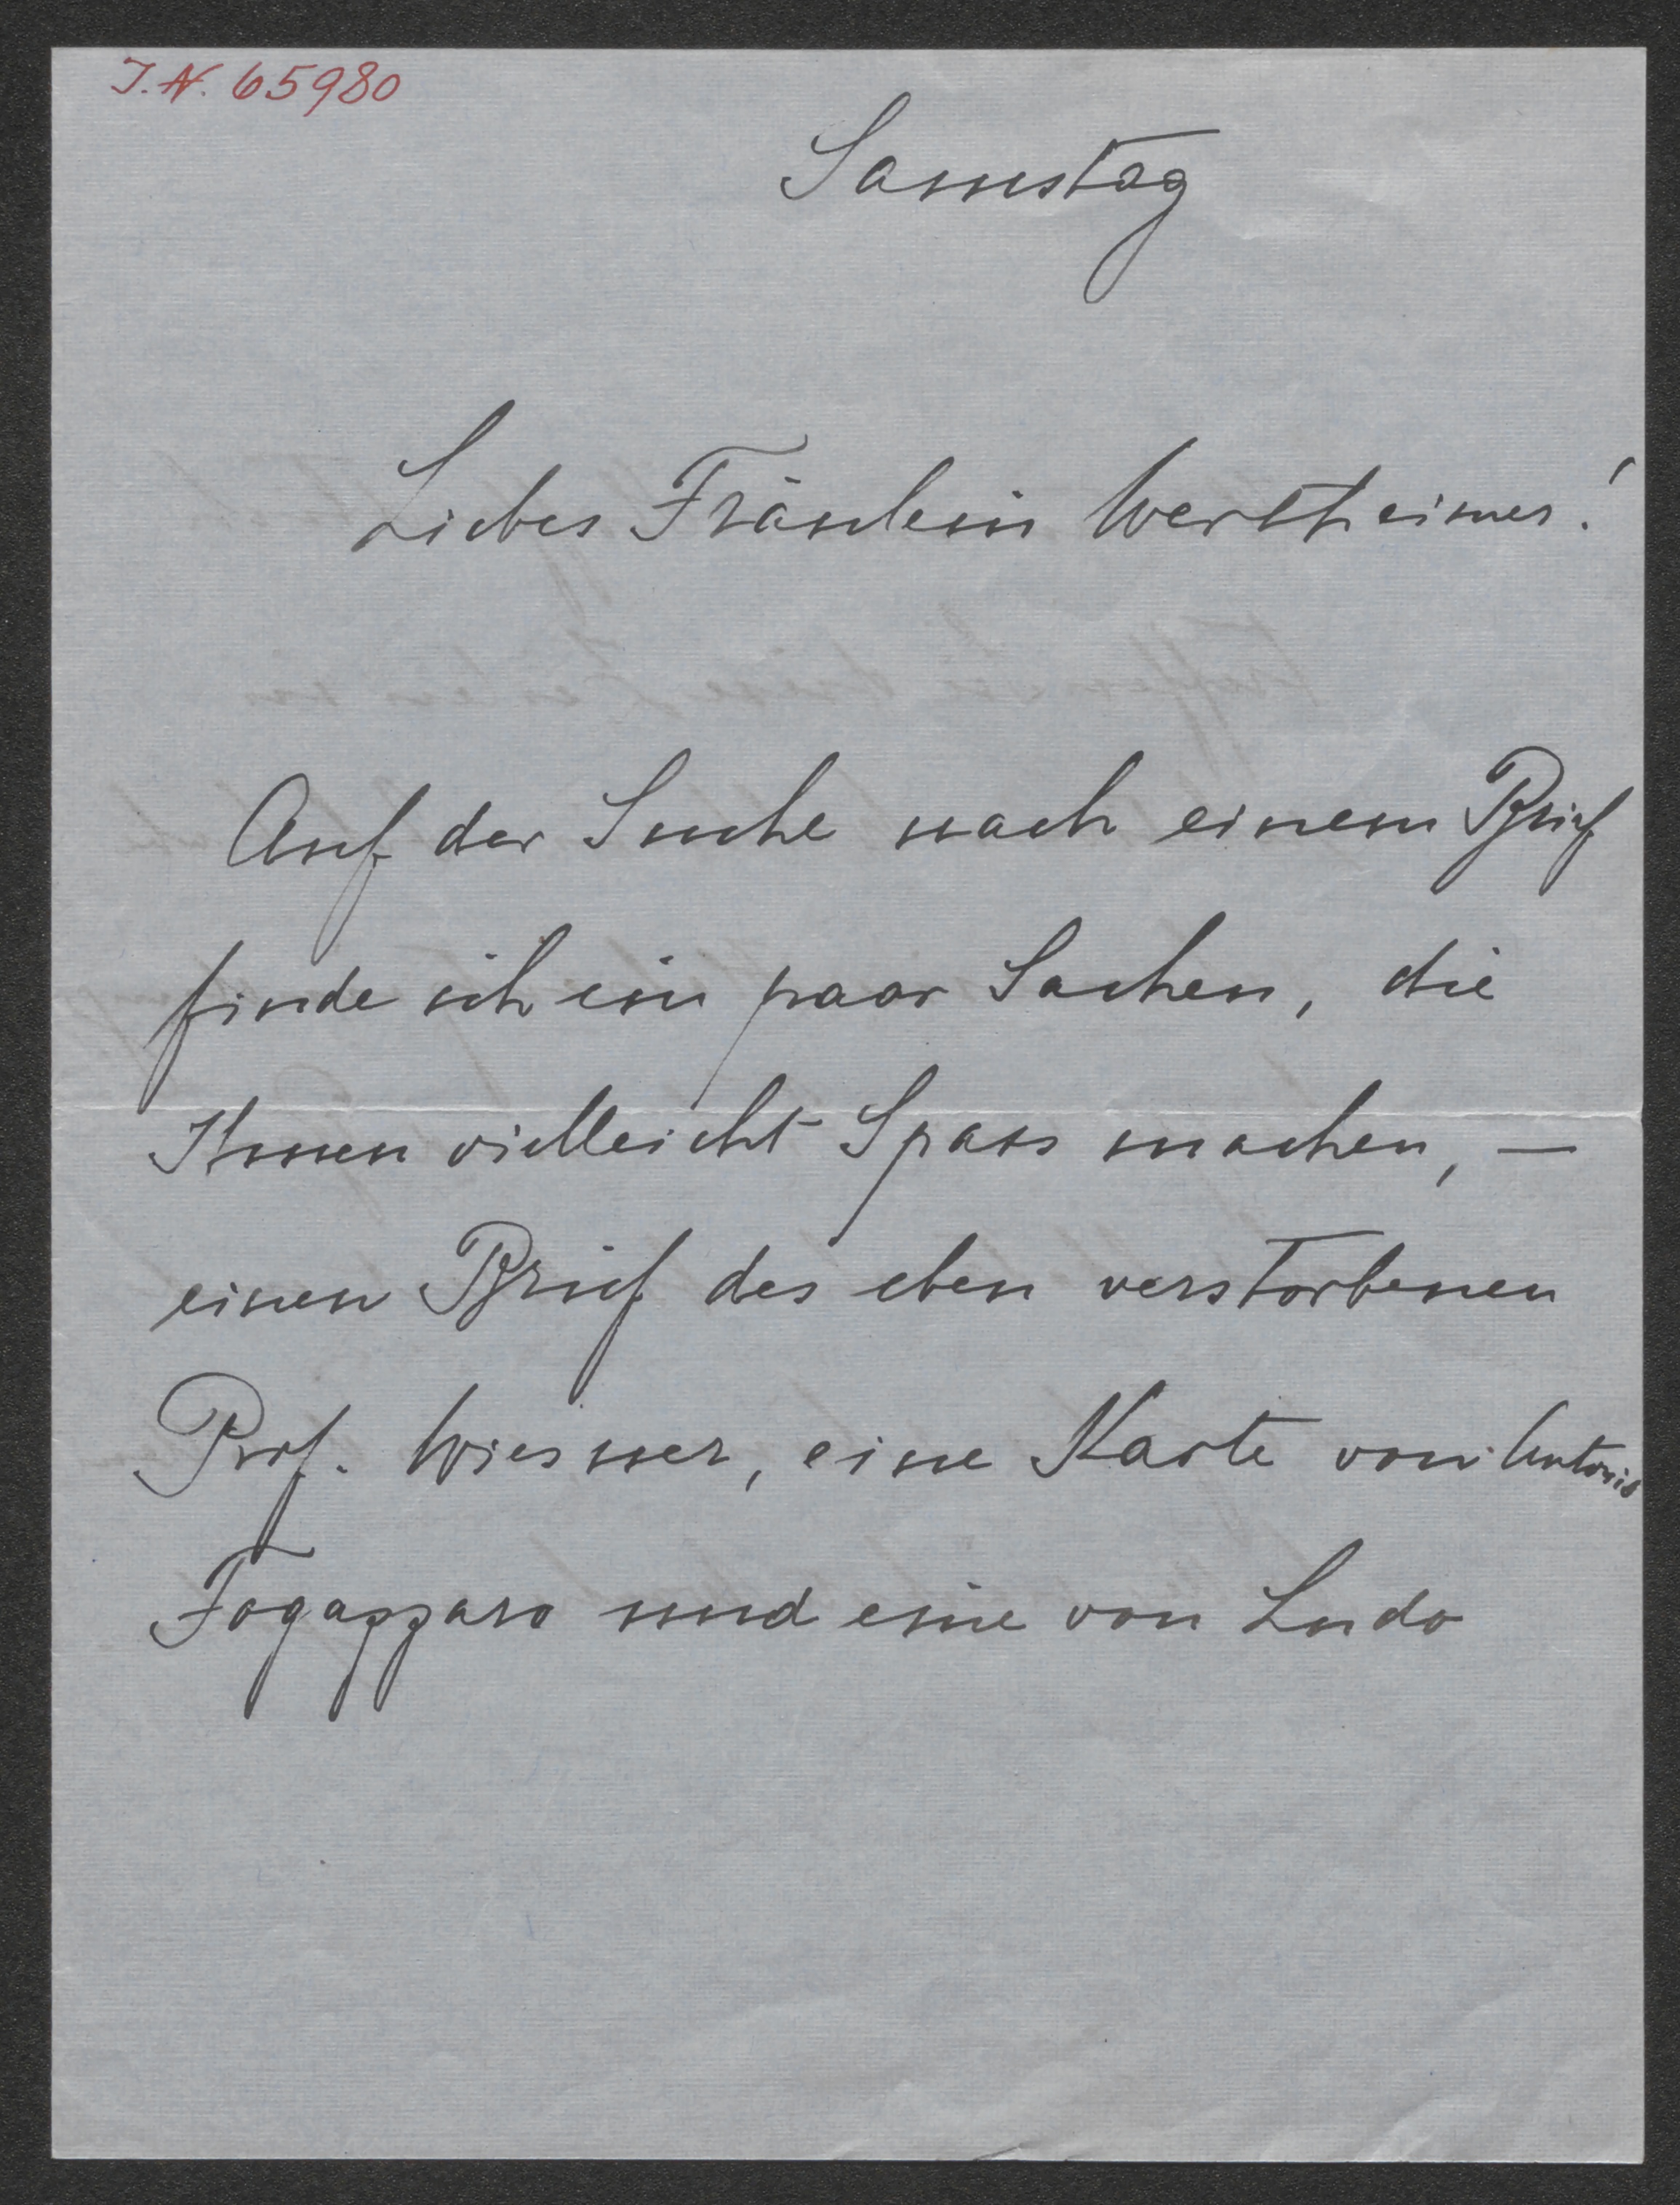 J.N. 65980
Samstag
Liebes Fräulein Wertheimer!
Auf der Suche nach einem Brief
finde ich ein paar Sachen, die
Ihnen vielleicht Spass machen, —
einen Brief des eben verstorbenen
Prof. Wiesner, eine Karte von Antonio
Fogazzaro und eine von Ludo